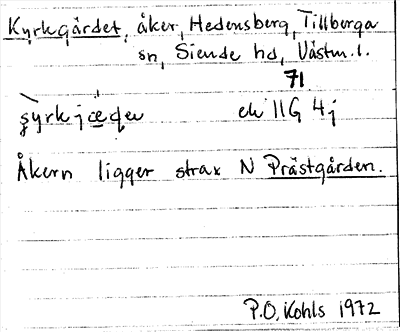 Kyrkgärdet, åker, Hedensberg, Tillberga
sn, Siende hd, Västm. l.
71
ek 11G 4j
Åkern ligger strax N Prästgården.
P.O. Kohls 1972